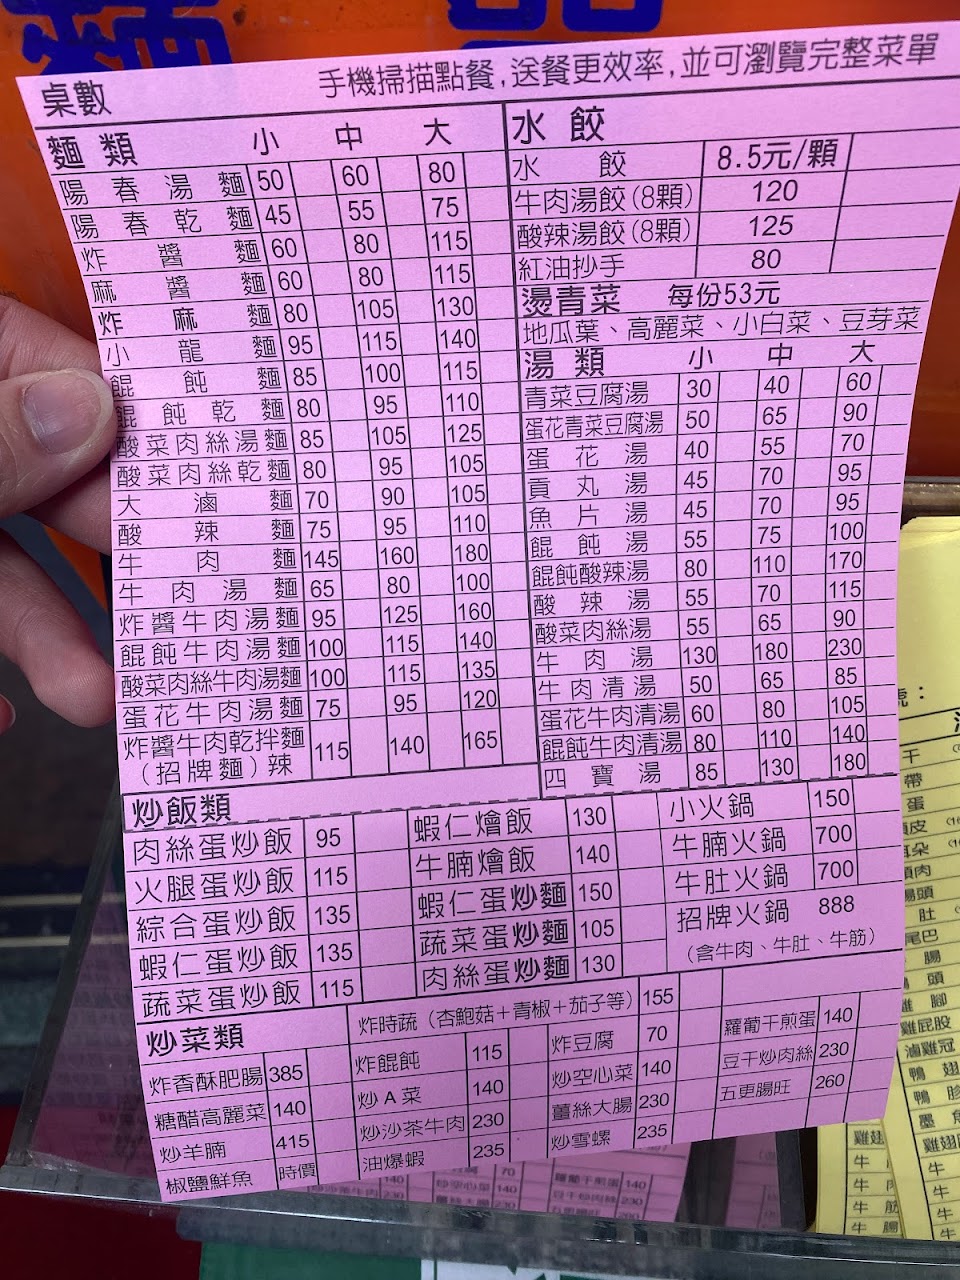 桌數
手機掃描點餐,送餐更效率,並可瀏覽完整菜單
麵類 小 中 大
陽春湯麵 50 60 80
陽春乾麵 45 55 75
炸醬麵 60 80 115
麻醬麵 60 80 115
炸麻麵 80 105 130
小龍麵 95 115 140
餛飩麵 85 100 115
餛飩乾麵 80 95 110
酸菜肉絲湯麵 85 105 125
酸菜肉絲乾麵 80 95 105
大滷麵 70 90 105
酸辣麵 75 95 110
牛肉麵 145 160 180
牛肉湯麵 65 80 100
炸醬牛肉湯麵 95 125 160
餛飩牛肉湯麵 100 115 140
酸菜肉絲牛肉湯麵 100 115 135
蛋花牛肉湯麵 75 95 120
炸醬牛肉乾拌麵
(招牌麵)辣 115 140 165
水餃
水餃 8.5元/顆
牛肉湯餃(8顆) 120
酸辣湯餃(8顆) 125
紅油抄手 80
燙青菜 每份53元
地瓜葉、高麗菜、小白菜、豆芽菜
湯類 小 中 大
青菜豆腐湯 30 40 60
蛋花青菜豆腐湯 50 65 90
蛋花湯 40 55 70
貢丸湯 45 70 95
魚片湯 45 70 95
餛飩湯 55 75 100
餛飩酸辣湯 80 110 170
酸辣湯 55 70 115
酸菜肉絲湯 55 65 90
牛肉湯 130 180 230
牛肉清湯 50 65 85
蛋花牛肉清湯 60 80 105
餛飩牛肉清湯 80 110 140
四寶湯 85 130 180
炒飯類
肉絲蛋炒飯 95
火腿蛋炒飯 115
綜合蛋炒飯 135
蝦仁蛋炒飯 135
蔬菜蛋炒飯 115
蝦仁燴飯 130
牛腩燴飯 140
蝦仁蛋炒麵 150
蔬菜蛋炒麵 105
肉絲蛋炒麵 130
小火鍋 150
牛腩火鍋 700
牛肚火鍋 700
招牌火鍋 888
(含牛肉、牛肚、牛筋)
炒菜類
炸時蔬(杏鮑菇+青椒+茄子等) 155
炸香酥肥腸 385
糖醋高麗菜 140
炒羊腩 415
椒鹽鮮魚 時價
炸餛飩 115
炒A菜 140
炒沙茶牛肉 230
油爆蝦 235
炸豆腐 70
炒空心菜 140
薑絲大腸 230
炒雪螺 235
蘿蔔干煎蛋 140
豆干炒肉絲 230
五更腸旺 260